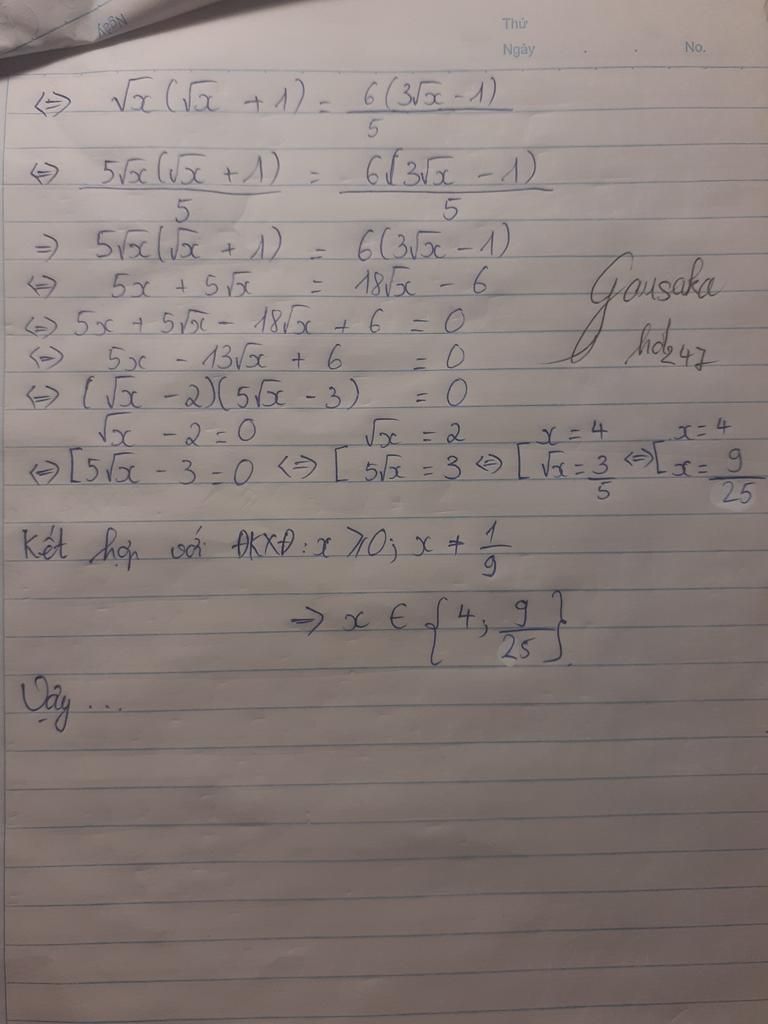 Ngày
Thứ
Ngày . . No.
⇔ √x (√x + 1) = 6(3√x - 1) / 5
⇔ 5√x(√x + 1) / 5 = 6(3√x - 1) / 5
⇒ 5√x(√x + 1) = 6(3√x - 1)
⇔ 5x + 5√x = 18√x - 6
⇔ 5x + 5√x - 18√x + 6 = 0
⇔ 5x - 13√x + 6 = 0
⇔ (√x - 2)(5√x - 3) = 0
⇔ [ √x - 2 = 0 ; 5√x - 3 = 0 ⇔ [ √x = 2 ; 5√x = 3 ⇔ [ x = 4 ; √x = 3/5 ⇔ [ x = 4 ; x = 9/25
Kết hợp với ĐKXĐ: x ≥ 0; x ≠ 1/9
⇒ x ∈ {4; 9/25}
Vậy ...
hd247